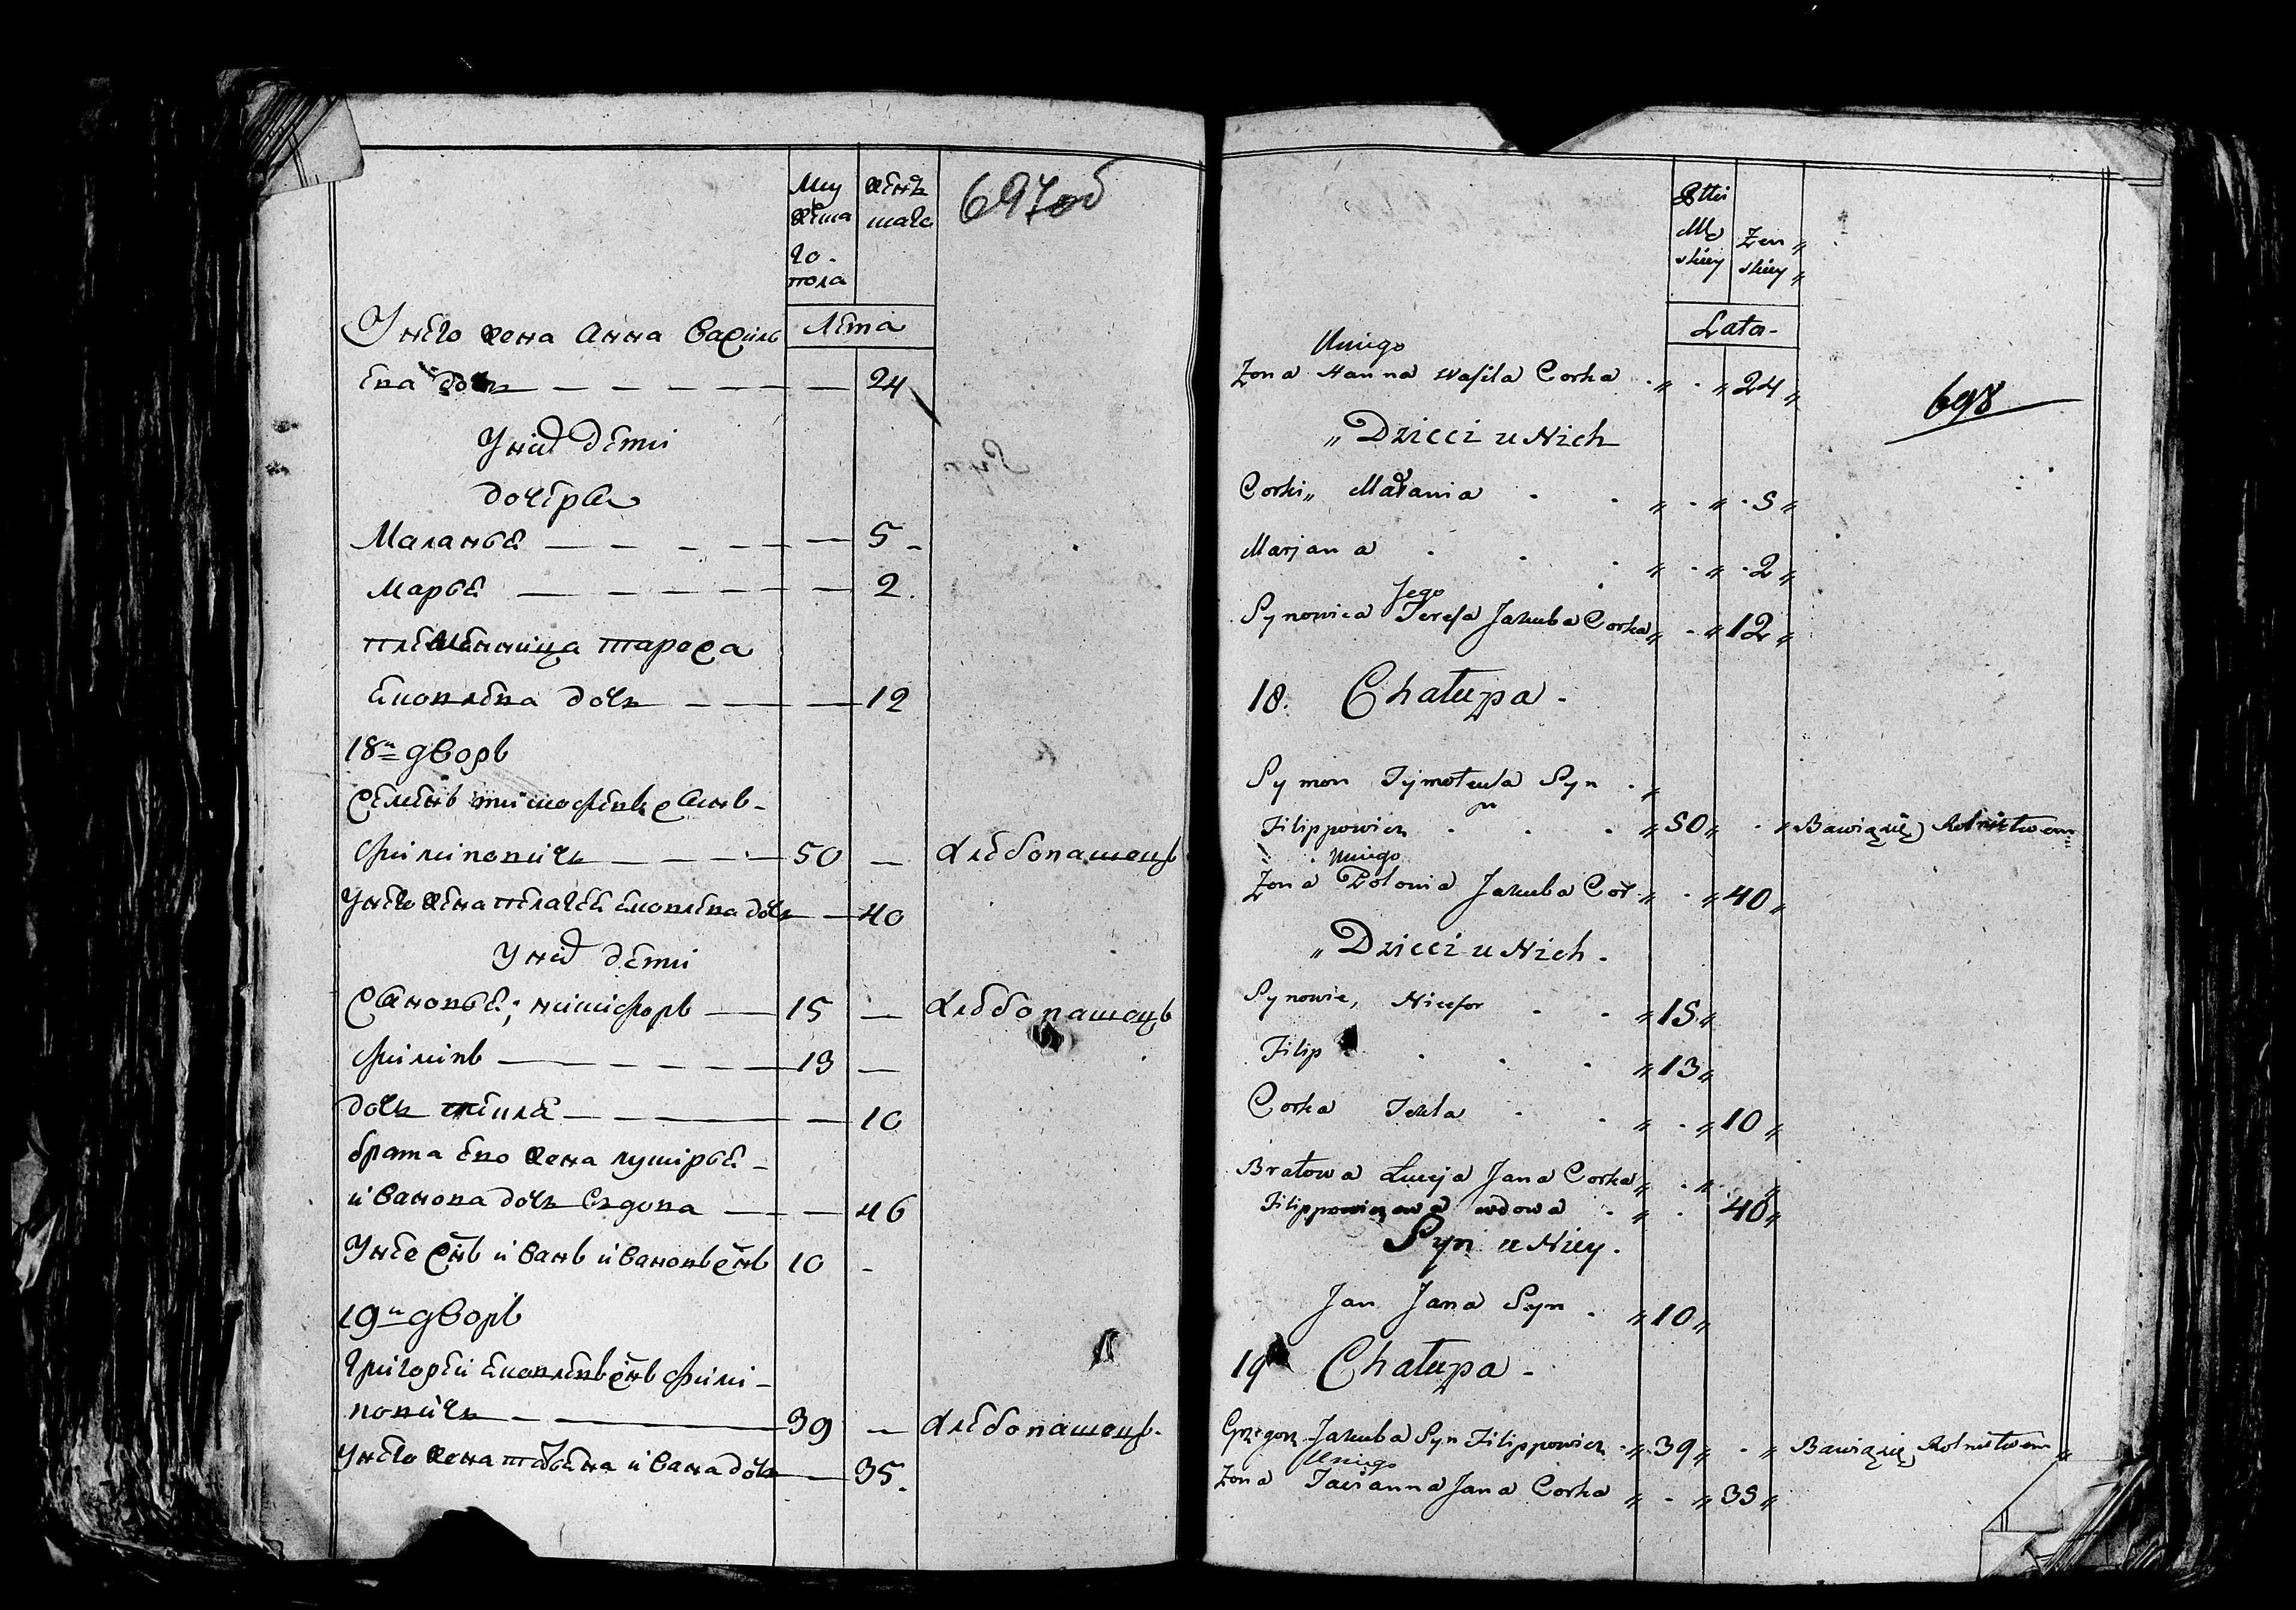 Му жеска го пола
женъ скаго
697об
Лета
У него жена Анна Василь
ева дочь 24
У них дети
дочерьи
Маланья 5
Марья 2
племянница Тареса
Яковлева дочь 12
18й дворъ
Семенъ Тимофеевъ сынъ
Филиповичь 50 хлебопашецъ
У него жена Пелагея Яковлева дочь 40
У них дети
Сыновья; Никифоръ 15 хлебопашецъ
Филипъ 13
дочь Текля 10
брата ево жена Лукирья
Иванова дочь вдова 46
У нее сынъ Иванъ Ивановъ сынъ 10
19й дворъ
Григорей Яковлевъ сынъ Фили-
повичь 39 хлебопашецъ
У него жена Татьяна Ивана дочь 35
Płci Mę skiey
Zen skiey
Lata
698
Uniego
Zona Hanna Wasila Corka 24
Dzieci u Nich
Corki Małania 5
Marjana 2
Jego
Synowica Teresa Jakuba Corka 12
18. Chałupa
Symon Tymoteusza Syn
Filippowicz 50 Bawiąsię Rolnictwem
Uniego
Zona Połonia Jakuba Cor 40
Dzieci u Nich
Synowie, Nicefor 15
Filip 13
Corka Tekla 10
Bratowa Łucyja Jana Corka
Filippowiczowa wdowa 40
Syn u Niey
Jan Jana Syn 10
19 Chałupa
Grzegorz Jakuba Syn Filippowicz 39 Bawiąsię Rolnictwem
Uniego
Zona Tacianna Jana Corka 35